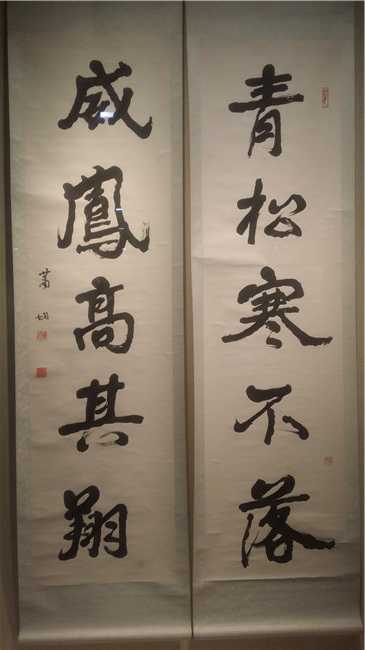 青松寒不落
威鳳高其翔
蕭嫻